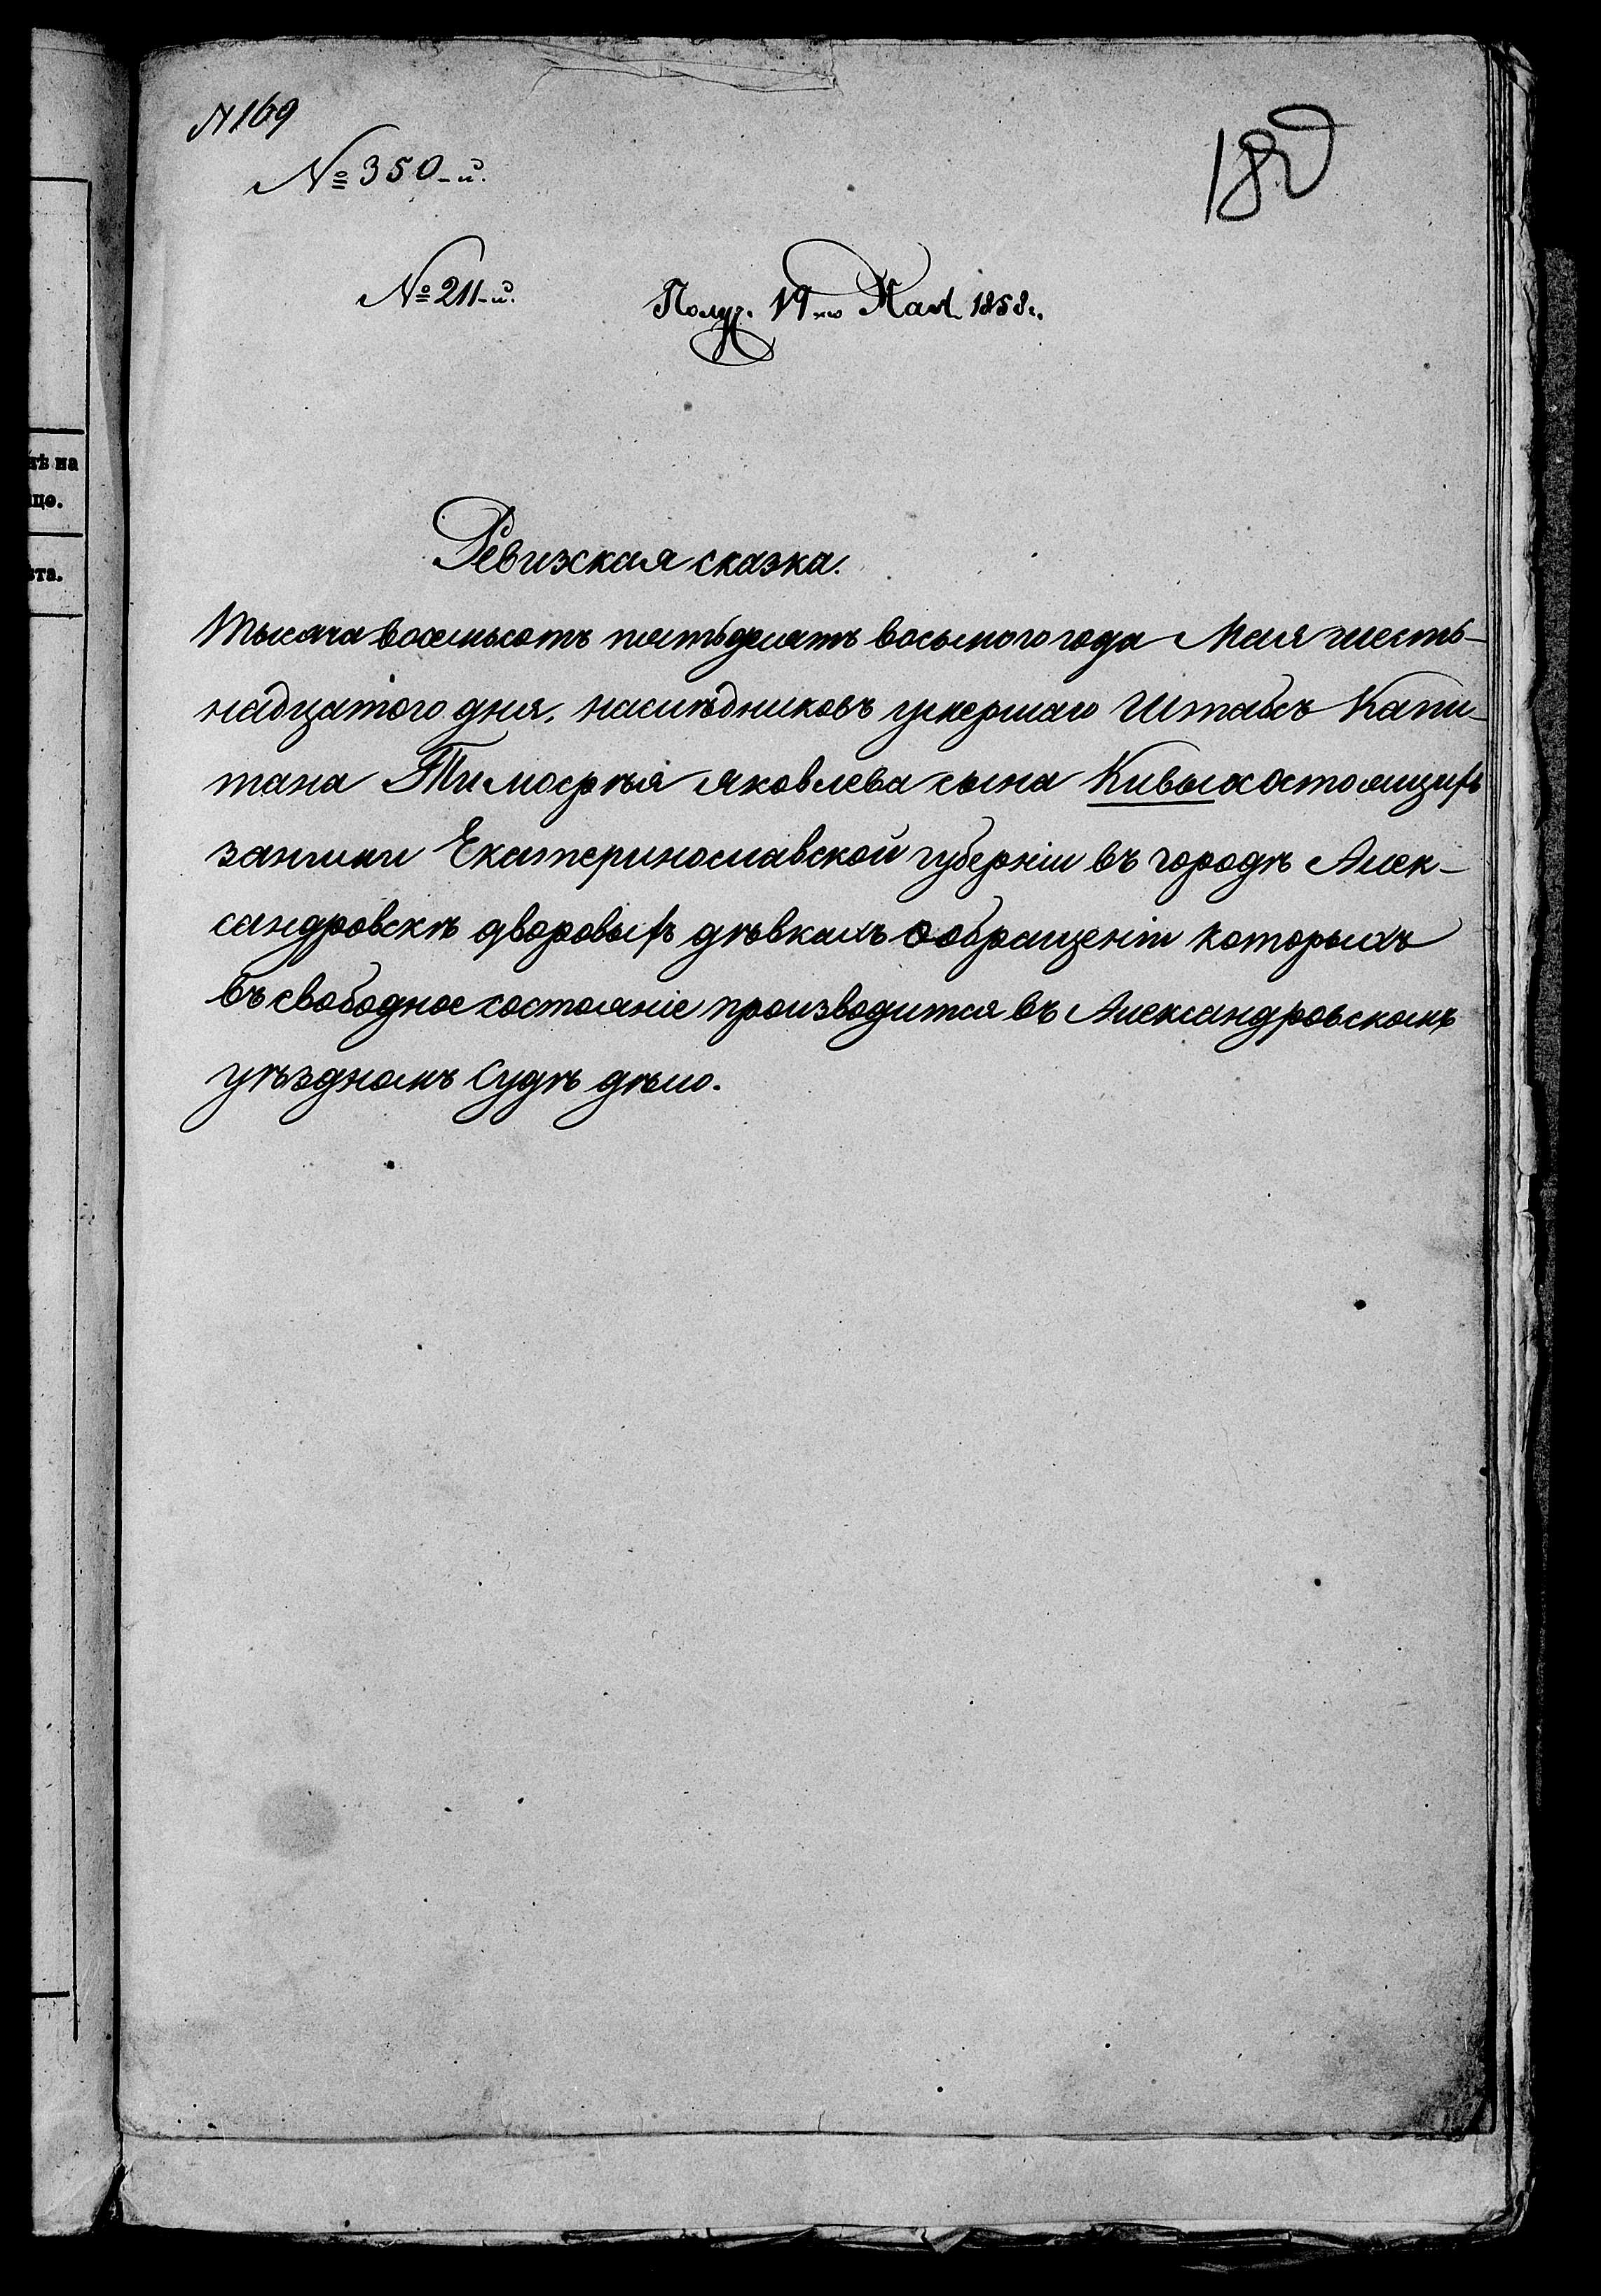 N 169
№ 350-й.
180
№ 211-й.
Получ. 19го Мая 1858 г.
тъ на
цо.
ѣта.
Ревизская сказка.
Тысяча восемьсотъ пятьдесятъ восьмого года Мая шесть-
надцатого дня, наслѣдниковъ умершаго Штабсъ Капи-
тана Тимофѣя Яковлева сына Кивы состоящихъ
заними Екатеринославской губерніи въ городѣ Алек-
сандровскѣ дворовыхъ дѣвкахъ о обращеніи которыхъ
въ свободное состояніе производится въ Александровскомъ
уѣздномъ Судѣ дѣло.